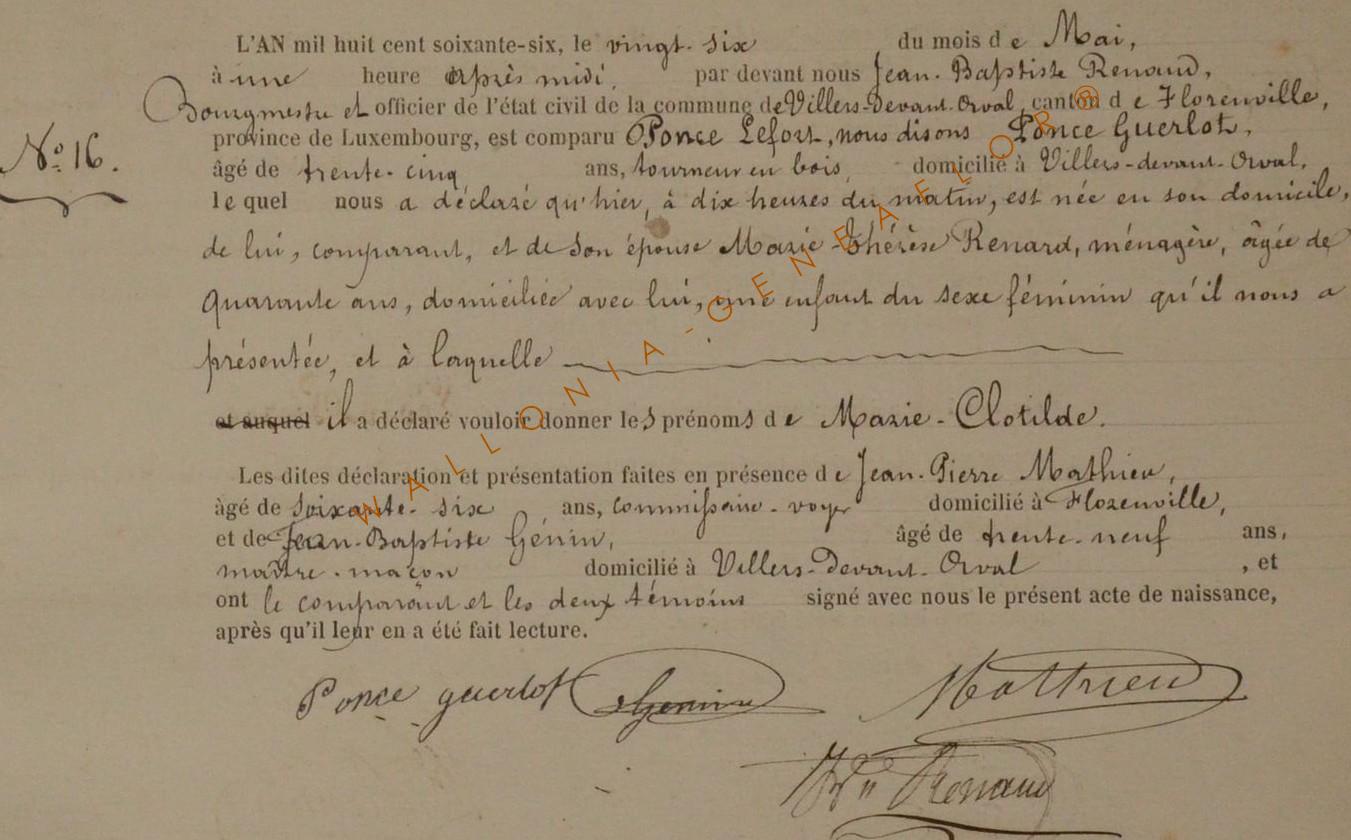 L'AN mil huit cent soixante-six, le vingt-six du mois de Mai,
à une heure après midi, par devant nous Jean-Baptiste Renaud,
Bourgmestre et officier de l'état civil de la commune de Villers-Devant-Orval, canton de Florenville,
province de Luxembourg, est comparu Ponce Lefort, nous disons Ponce Guerlot,
N° 16.
âgé de trente-cinq ans, tourneur en bois, domicilié à Villers-devant-Orval,
lequel nous a déclaré qu'hier, à dix heures du matin, est née en son domicile,
de lui, comparant, et de son épouse Marie-Thérèse Renard, ménagère, âgée de
quarante ans, domiciliée avec lui, une enfant du sexe féminin qu'il nous a
présentée, et à laquelle
et auquel il a déclaré vouloir donner les prénoms de Marie-Clotilde.
Les dites déclaration et présentation faites en présence de Jean-Pierre Mathieu,
âgé de soixante-six ans, commissaire-voyer domicilié à Florenville,
et de Jean-Baptiste Génin, âgé de trente-neuf ans,
maître-maçon domicilié à Villers-Devant-Orval, et
ont le comparant et les deux témoins signé avec nous le présent acte de naissance,
après qu'il leur en a été fait lecture.
Ponce guerlot Genin Mathieu
Renaud
WALLONIA-GENEALOR®